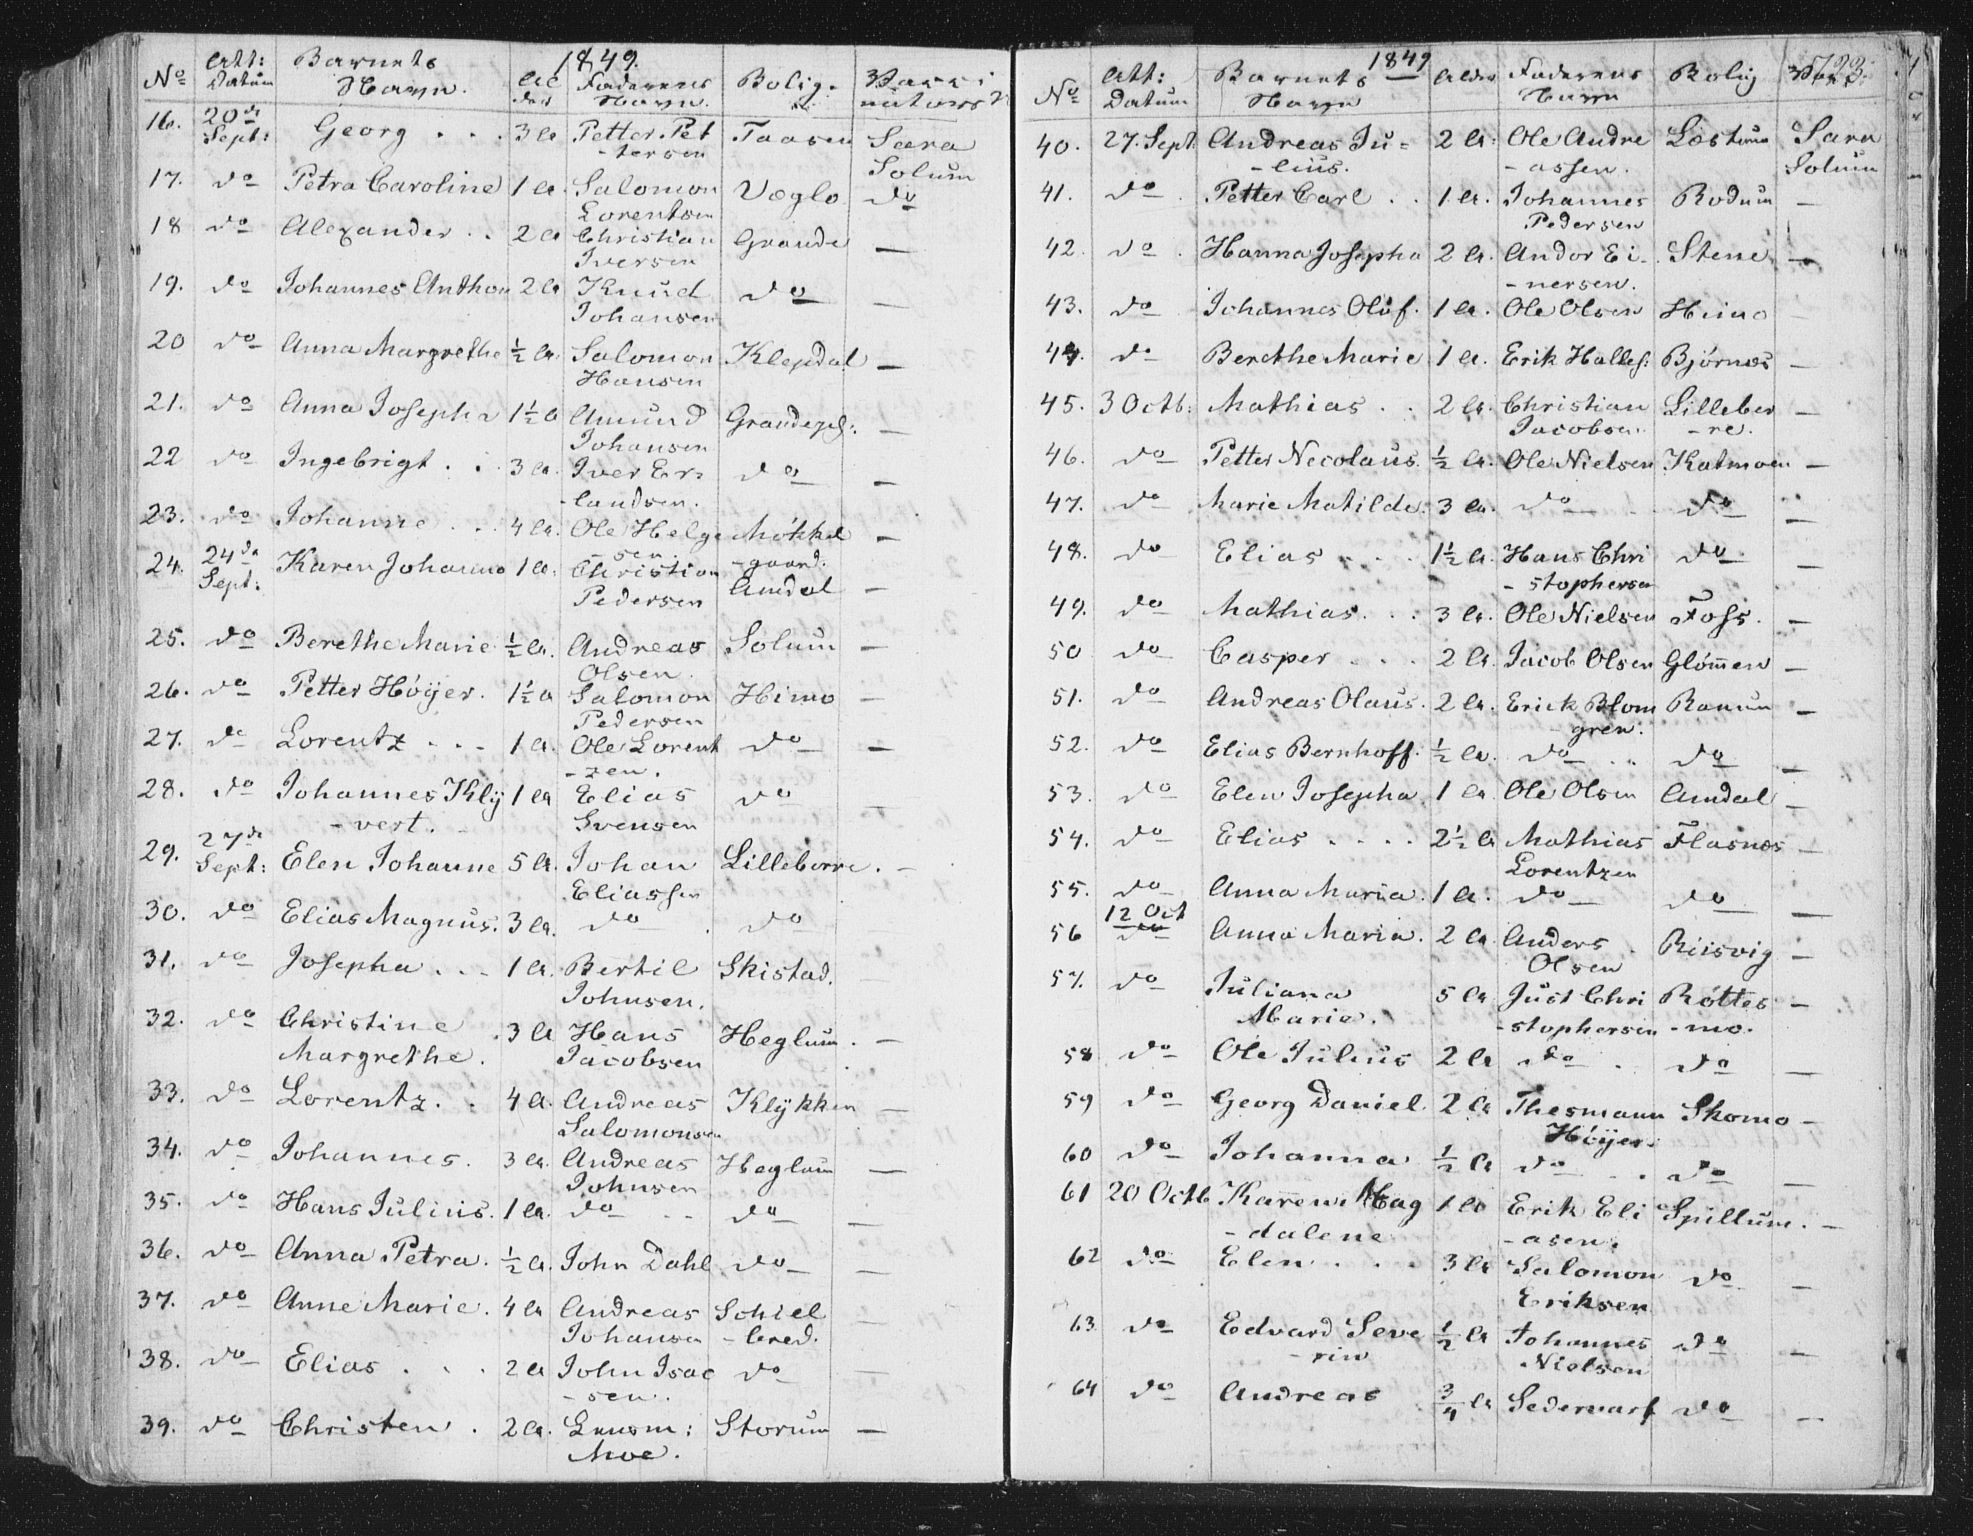 1849.
No Att: Datum Barnets Navn. Al der Faderens Navn. Bolig.
16. 20de Sept: Georg . . . 3 A Petter Pet-tersen Taasen Sara Solum
17. do Petra Caroline 1 A. Salomon Lorentsen Voglo do
18 do Alexander . . 2 A Christian Iversen Grande —
19. do Johannes Anthon 2 A Knud Johansen do —
20 do Anna Margrethe ½ A. Salomon Hansen Klepdal —
21. do Anna Josepha 1½ A Amund Johansen Grandepl: —
22 do Ingebrigt . . . 3 A. Iver Er-landsen. do —
23. do Johanne . . . 4 A. Ole Helge-sen. Mökkel-gaard. —
24. 24de Sept: Karen Johanna 1 A. Christian Pedersen Amdal —
25. do Berethe Marie ½ A. Andreas Olsen. Solum —
26. do Petter Höyer. 1½ A Salomon Pedersen Himo —
27. do Lorentz . . . 1 A. Ole Lorent-zen. do —
28. do Johannes Kly-vert. 1 A Elias Svensen do —
29. 27de Sept: Elen Johanne 5 A. Johan Eliassen Lilleberre. —
30. do Elias Magnus. 3 A. do do
31. do Josepha . . . 1 A. Bertil Johnsen. Skistad. —
32. do Christine Margrethe. 3 A Hans Jacobsen Heglum. —
33. do Lorentz. . 4 A. Andreas Salomonsen Klykken —
34. do Johannes. 3 A. Andreas Johnsen Heglum —
35. do Hans Julius. 1 A. do . . do —
36. do Anna Petra. ½ A. John Dahl do —
37. do Anne Marie. 4 A Andreas Johansen Schiel-bred. —
38. do Elias . . . 2 A John Isac-sen. do —
39. do Christen . 2 A. Moe. Storum —
1849
No Att: Datum Barnets Navn Alder Faderens Navn Bolig
40. 27. Sept. Andreas Ju-lius. 2 A. Ole Andre-assen. Lostum Sara Solum
41. do Petter Carl . . 1 A. Johannes Pedersen Rodum —
42. do Hanna Josepha 2 A. Andor Ei-nersen. Stene —
43. do Johannes Oluf. 1 A. Ole Olsen Himo —
44. do Berethe Marie 1 A. Erik Halles: Björnæs —
45. 3 Octb: Mathias . . 2 A. Christian Jacobsen. Lilleber-re. —
46. do Petter Necolaus. ½ A. Ole Nielsen Katmoen —
47. do Marie Matilde. 3 A. do do —
48. do Elias . . . 1½ A. Hans Chri-stophersen do —
49. do Mathias. . . 3 A. Ole Nielsen Foss. —
50 do Casper . . . 2 A. Jacob Olsen Glömmen —
51. do Andreas Olaus. 2 A. Erick Blom-gren. Ranum —
52. do Elias Bernhoff. ½ A. do . . do —
53. do Elen Josepha 1 A. Ole Olsen Amdal —
54. do Elias . . . . 2½ A Mathias Lorentzen Flasnæs —
55. do Anna Maria. 1 A. do do —
56 12 Oct do Anna Maria. 2 A Anders Olsen Riisvig —
57. do Juliana Marie. 5 A Just Chri-stophersen Röttes-mo. —
58 do Ole Julius 2 A do . do —
59 do Georg Daniel. 2 A Thesmann Höyer. Skomo —
60 do Johanna ½ A do . . do —
61 20 Octb Karen Mag-dalene 1 A Erik Eli-asen. Spillum. —
62 do Elen . . . 3 A Salomon Eriksen do —
63 do Edvard Seve-rin ½ A Johannes Nielsen do —
64 do Andreas ¾ A do —